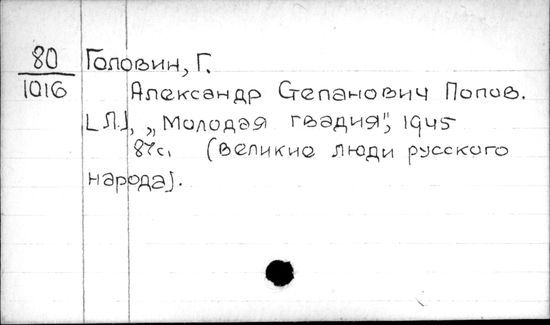 80
1016
Головин, Г.
Александр Степанович Попов.
[Л.], „Молодая гвадия", 1945
87с. (великие люди русского
народа).